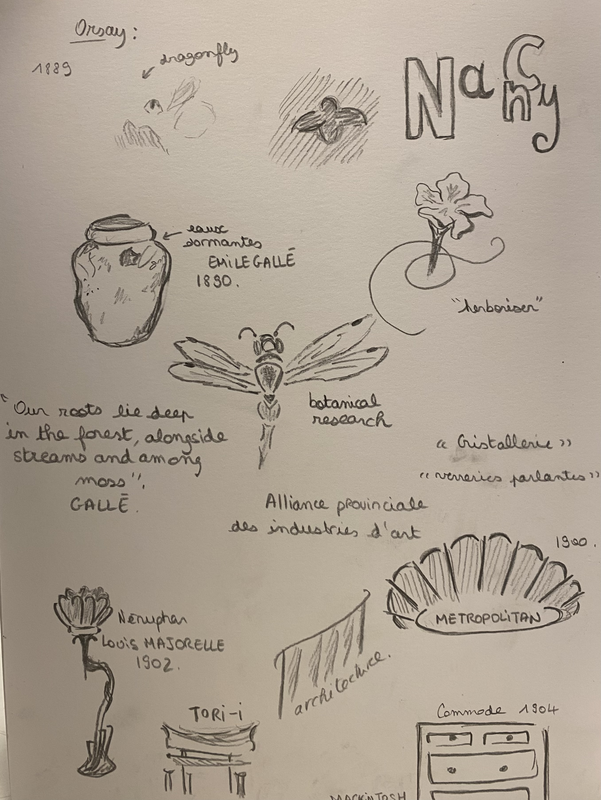 Orsay :
1889
dragonfly
Nancy
eaux
dormantes
EMILE GALLÉ
1890.
"herboriser"
botanical
research
"Our roots lie deep
in the forest, alongside
streams and among
moss".
GALLÉ.
« Cristallerie »
« verreries parlantes »
Alliance provinciale
des industries d'art
1900.
METROPOLITAN
Nénuphar
Louis MAJORELLE
1902.
architecture.
TORi-i
Commode 1904
MACKINTOSH